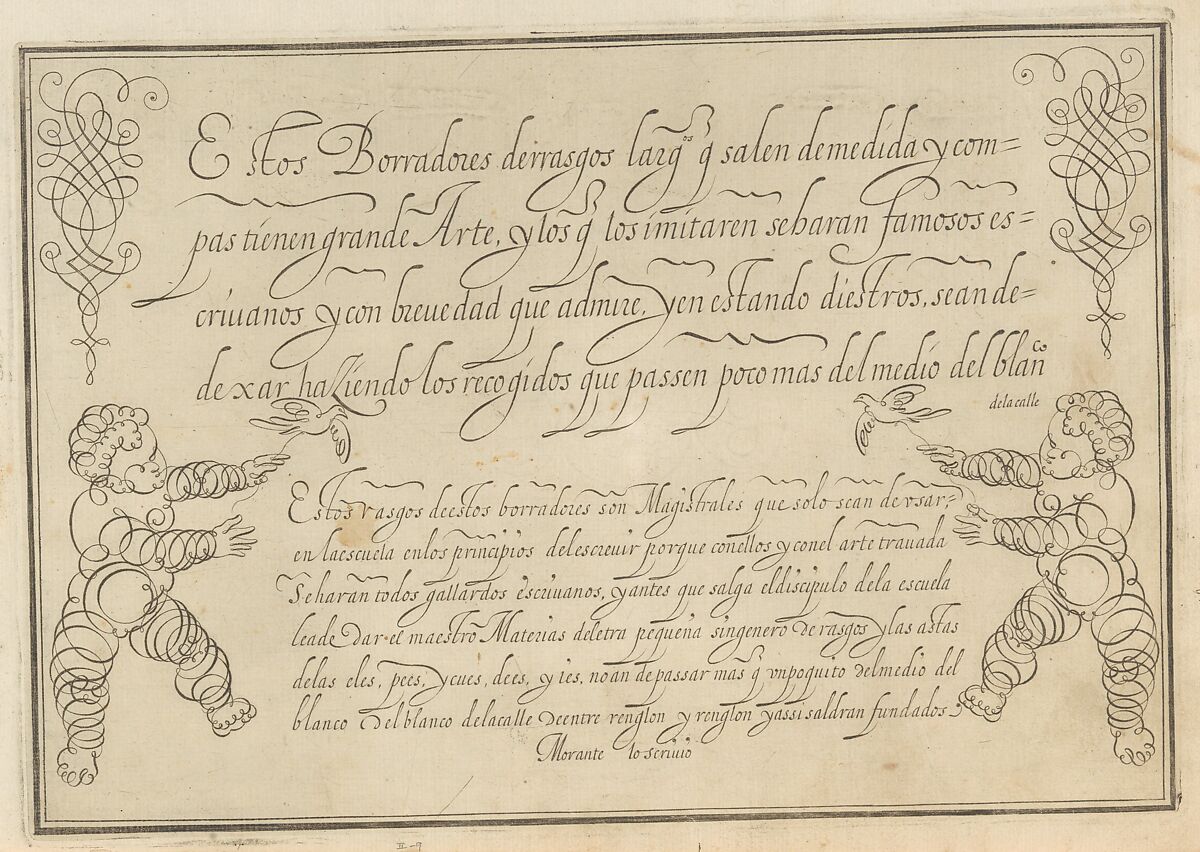 Estos Borradores derrasgos largos q̃ salen demedida y com=
pas tienen grande Arte, y los q̃ los imitaren seharan famosos es=
criuanos y con breuedad que admire, y en estando diestros, sean de=
de xar haziendo los recogidos que passen poco mas del medio del blanco
dela calle
Estos rasgos destos borradores son Magistrales que solo sean de vsar,
en la escuela en los principios del escreuir porque conellos y conel arte trauada
Seharan todos gallardos escriuanos, y antes que salga el discipulo dela escuela
leade Dar el maestro Materias deletra pequeña singenero de rasgos y las astas
delas eles, pees, y cues, dees, y ies, no an de passar mas q̃ vn poquito del medio del
blanco Del blanco dela calle De entre renglon y renglon y assi saldran fundados
Morante lo scriuio
II-9